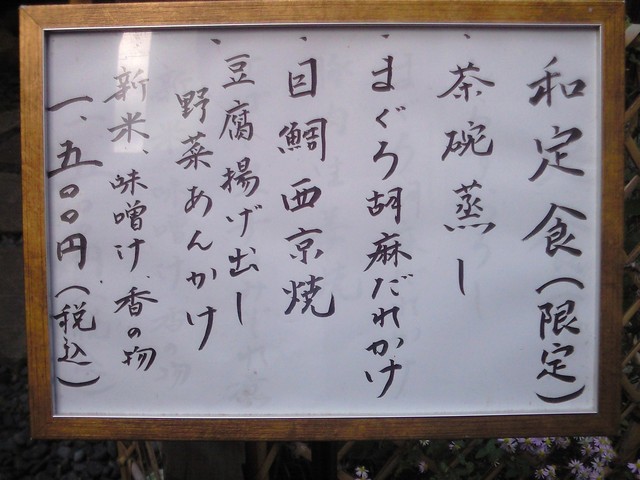 和定食(限定)
、茶碗蒸し
、まぐろ胡麻だれかけ
、目鯛西京焼
、豆腐揚げ出し
野菜あんかけ
新米、味噌汁、香の物
一、五〇〇円(税込)